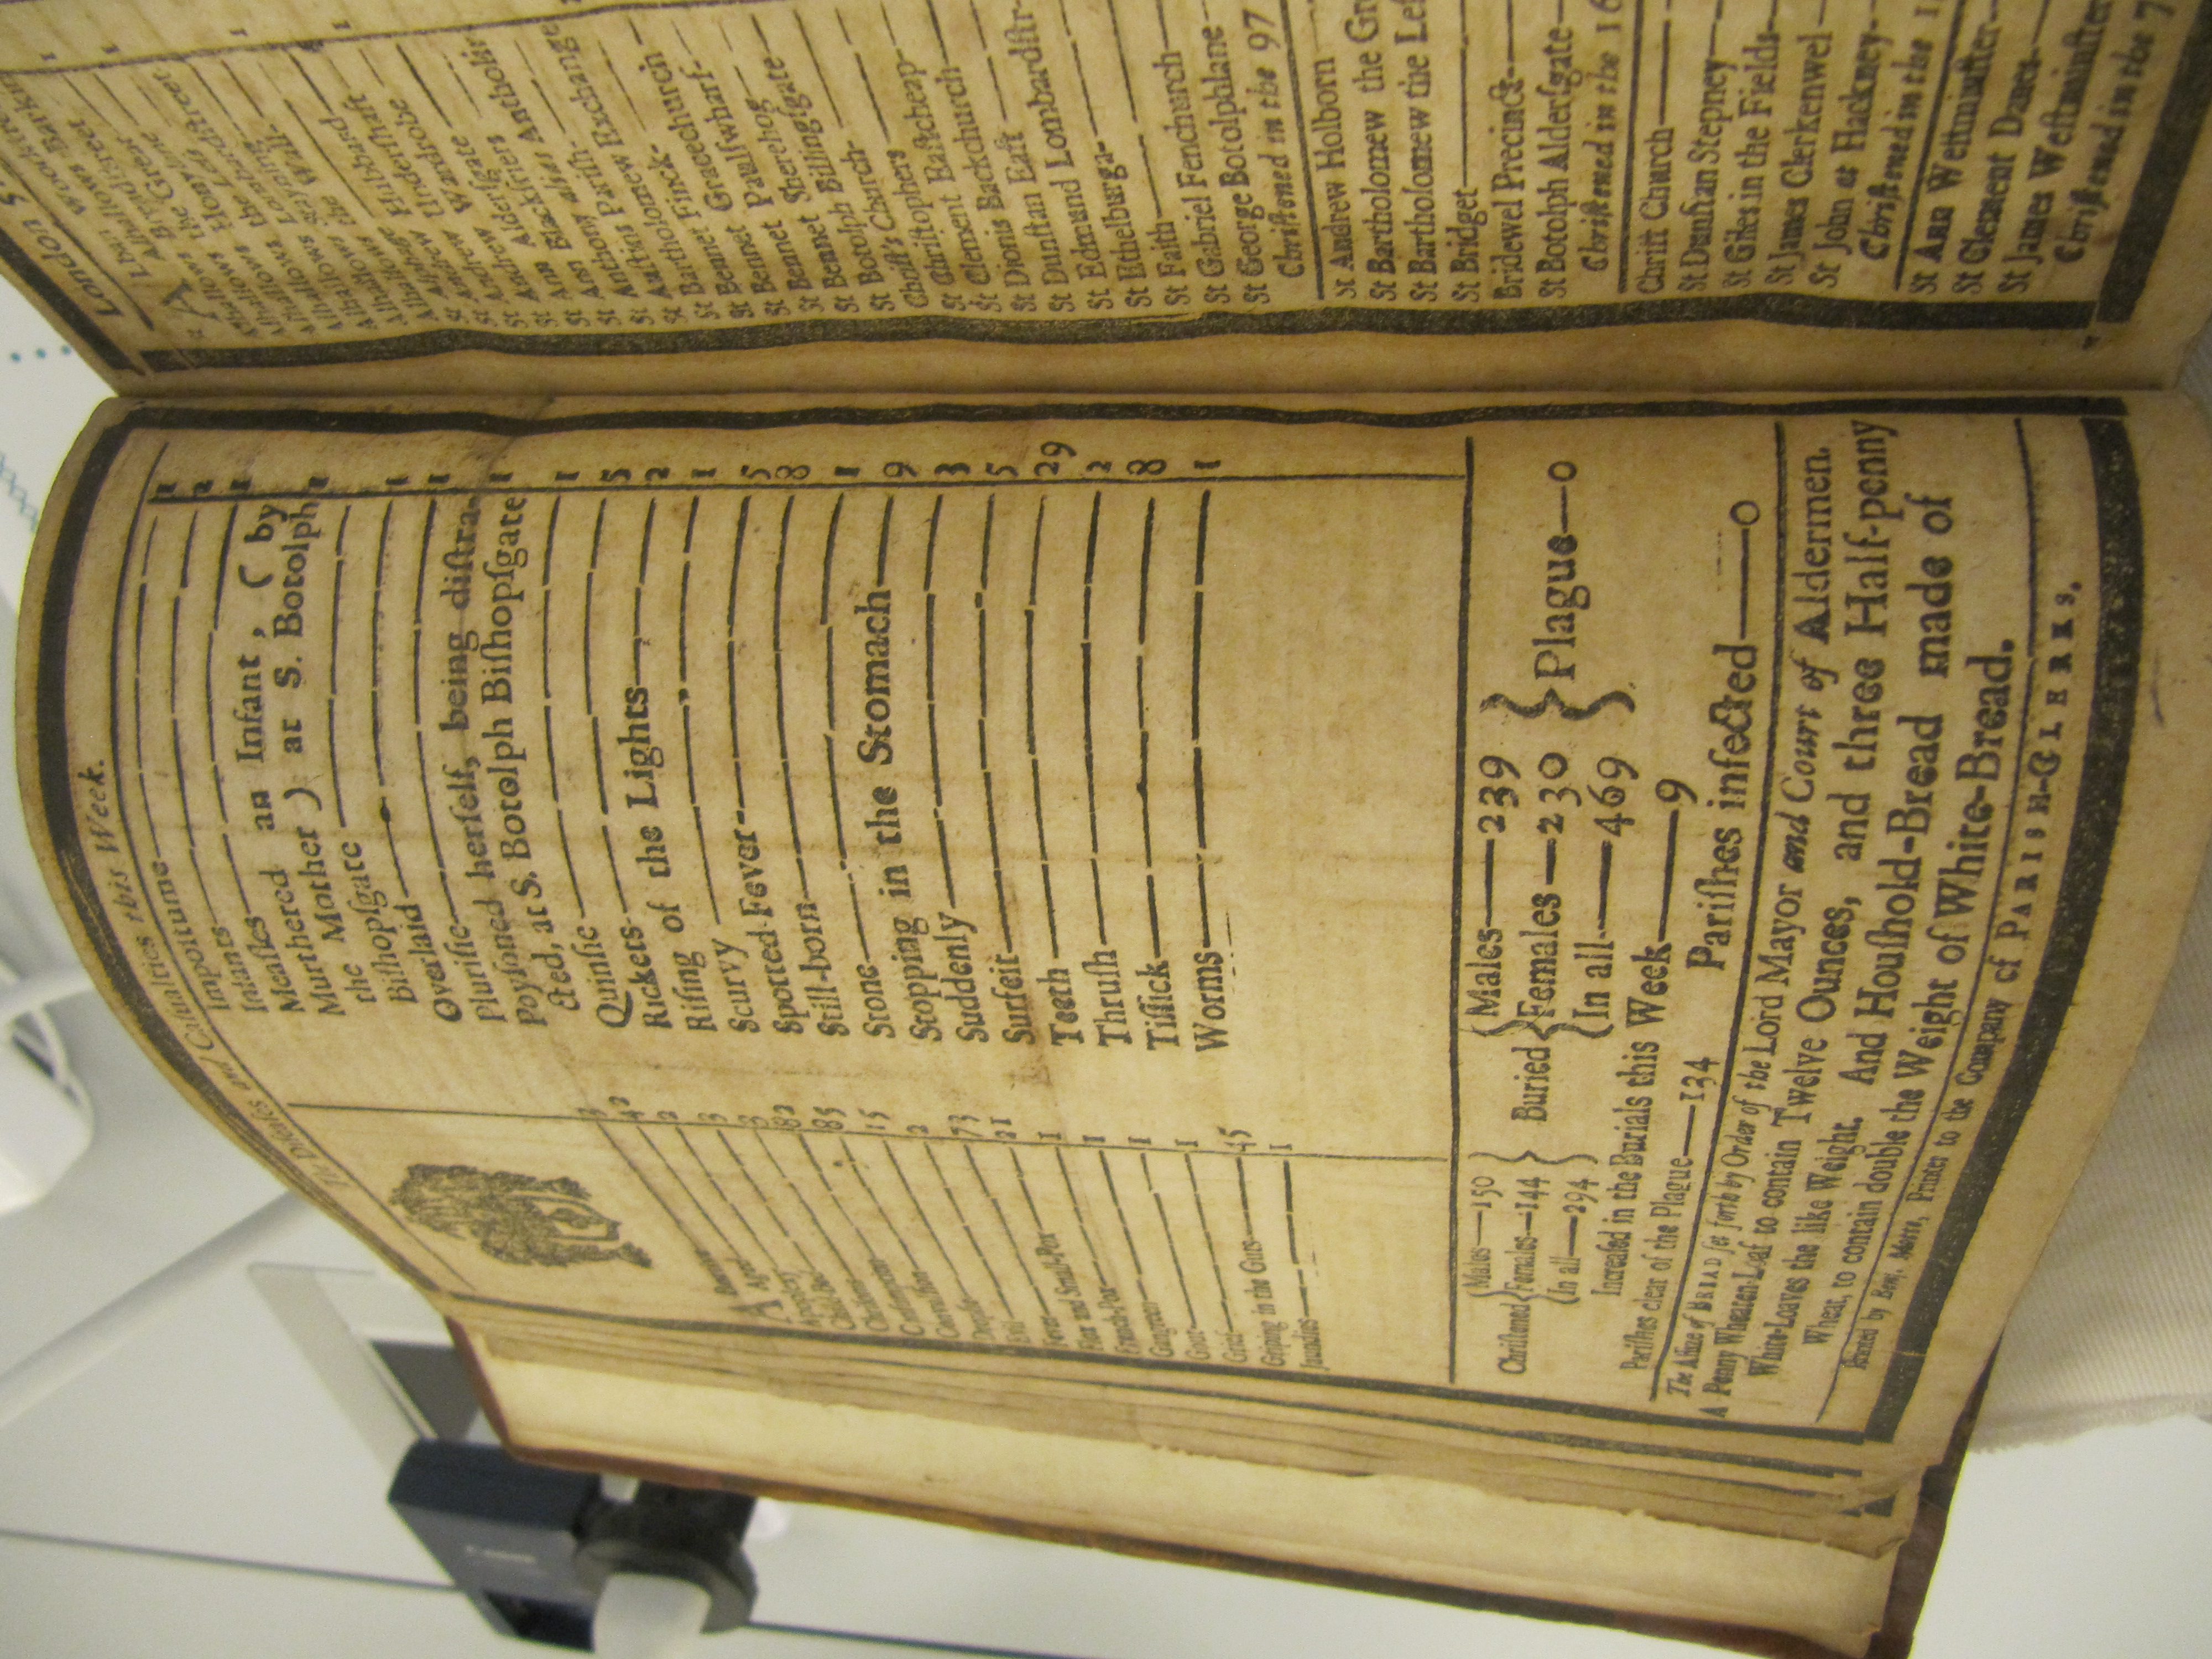 The Diseases and Casualties this Week.
Abortive 3
Aged 42
Apoplexy 2
Child-bed 3
Chrisoms 8
Consumption 82
Convulsion 85
Dropsie 15
Evil 2
Fever 73
Flox and Small-Pox 21
French-Pox 1
Gangreen 1
Gout 1
Grief 1
Griping in the Guts 45
Jaundies 1
Impostume 1
Infants 2
Meaſles 1
Murthered an Infant, ( by
the Mother ) at S. Botolph
Biſhopſgate 1
Overlaid 1
Pluriſie 1
Poyſoned herſelf, being diſtra-
cted, at S. Botolph Biſhopſgate 1
Quinſie 1
Rickets 5
Riſing of the Lights 2
Scurvy 1
Spotted Fever 5
Still-born 8
Stone 1
Stopping in the Stomach 9
Suddenly 3
Surfeit 5
Teeth 29
Thruſh 2
Tiſſick 8
Worms 1
Chriſtned { Males 150 Females 144 In all 294 } Buried { Males 239 Females 230 In all 469 } Plague 0
Increaſed in the Burials this Week 9
Pariſhes clear of the Plague 134 Pariſhes infected 0
The Aſſize of BREAD ſet forth by Order of the Lord Mayor and Court of Aldermen.
A Penny Wheaten-Loaf to contain Twelve Ounces, and three Half-penny
White-Loaves the like Weight. And Houſhold-Bread made of
Wheat, to contain double the Weight of White-Bread.
Printed by Benj. Motte, Printer to the Company of PARISH-CLERKS.
London
St Alban Woodſtreet
Alhallows Barking
Alhallows Breadſtreet
Alhallows Honylane
Alhallows Lombardſtreet
St Andrew Hubbard
St Andrew Underſhaft
St Andrew Wardrobe
St Ann Alderſgate
St Ann Blackfryers
St Antholin alias Anthony
St Auſtins Pariſh
St Bartholomew Exchange
St Bennet Finck
St Bennet Gracechurch
St Bennet Paulſwharf
St Bennet Sherehog
St Botolph Billingſgate
Chriſt's Church
St Chriſtophers
St Clement Eaſtcheap
St Dionis Backchurch
St Dunſtan Eaſt
St Edmund Lombardſtr
St Ethelburga
St Faith
St Gabriel Fenchurch
St George Botolphlane
Chriſtened in the 97
St Andrew Holborn
St Bartholomew the Gr
St Bartholomew the Leſ
St Bridget
Bridewel Precinct
St Botolph Alderſgate
Chriſtened in the 16
Chriſt Church
St Dunſtan Stepney
St Giles in the Fields
St James Clerkenwel
St John at Hackney
Chriſtened in the 1
St Ann Weſtminſter
St Clement Danes
St James Weſtminſter
Chriſtened in the 7
Canon